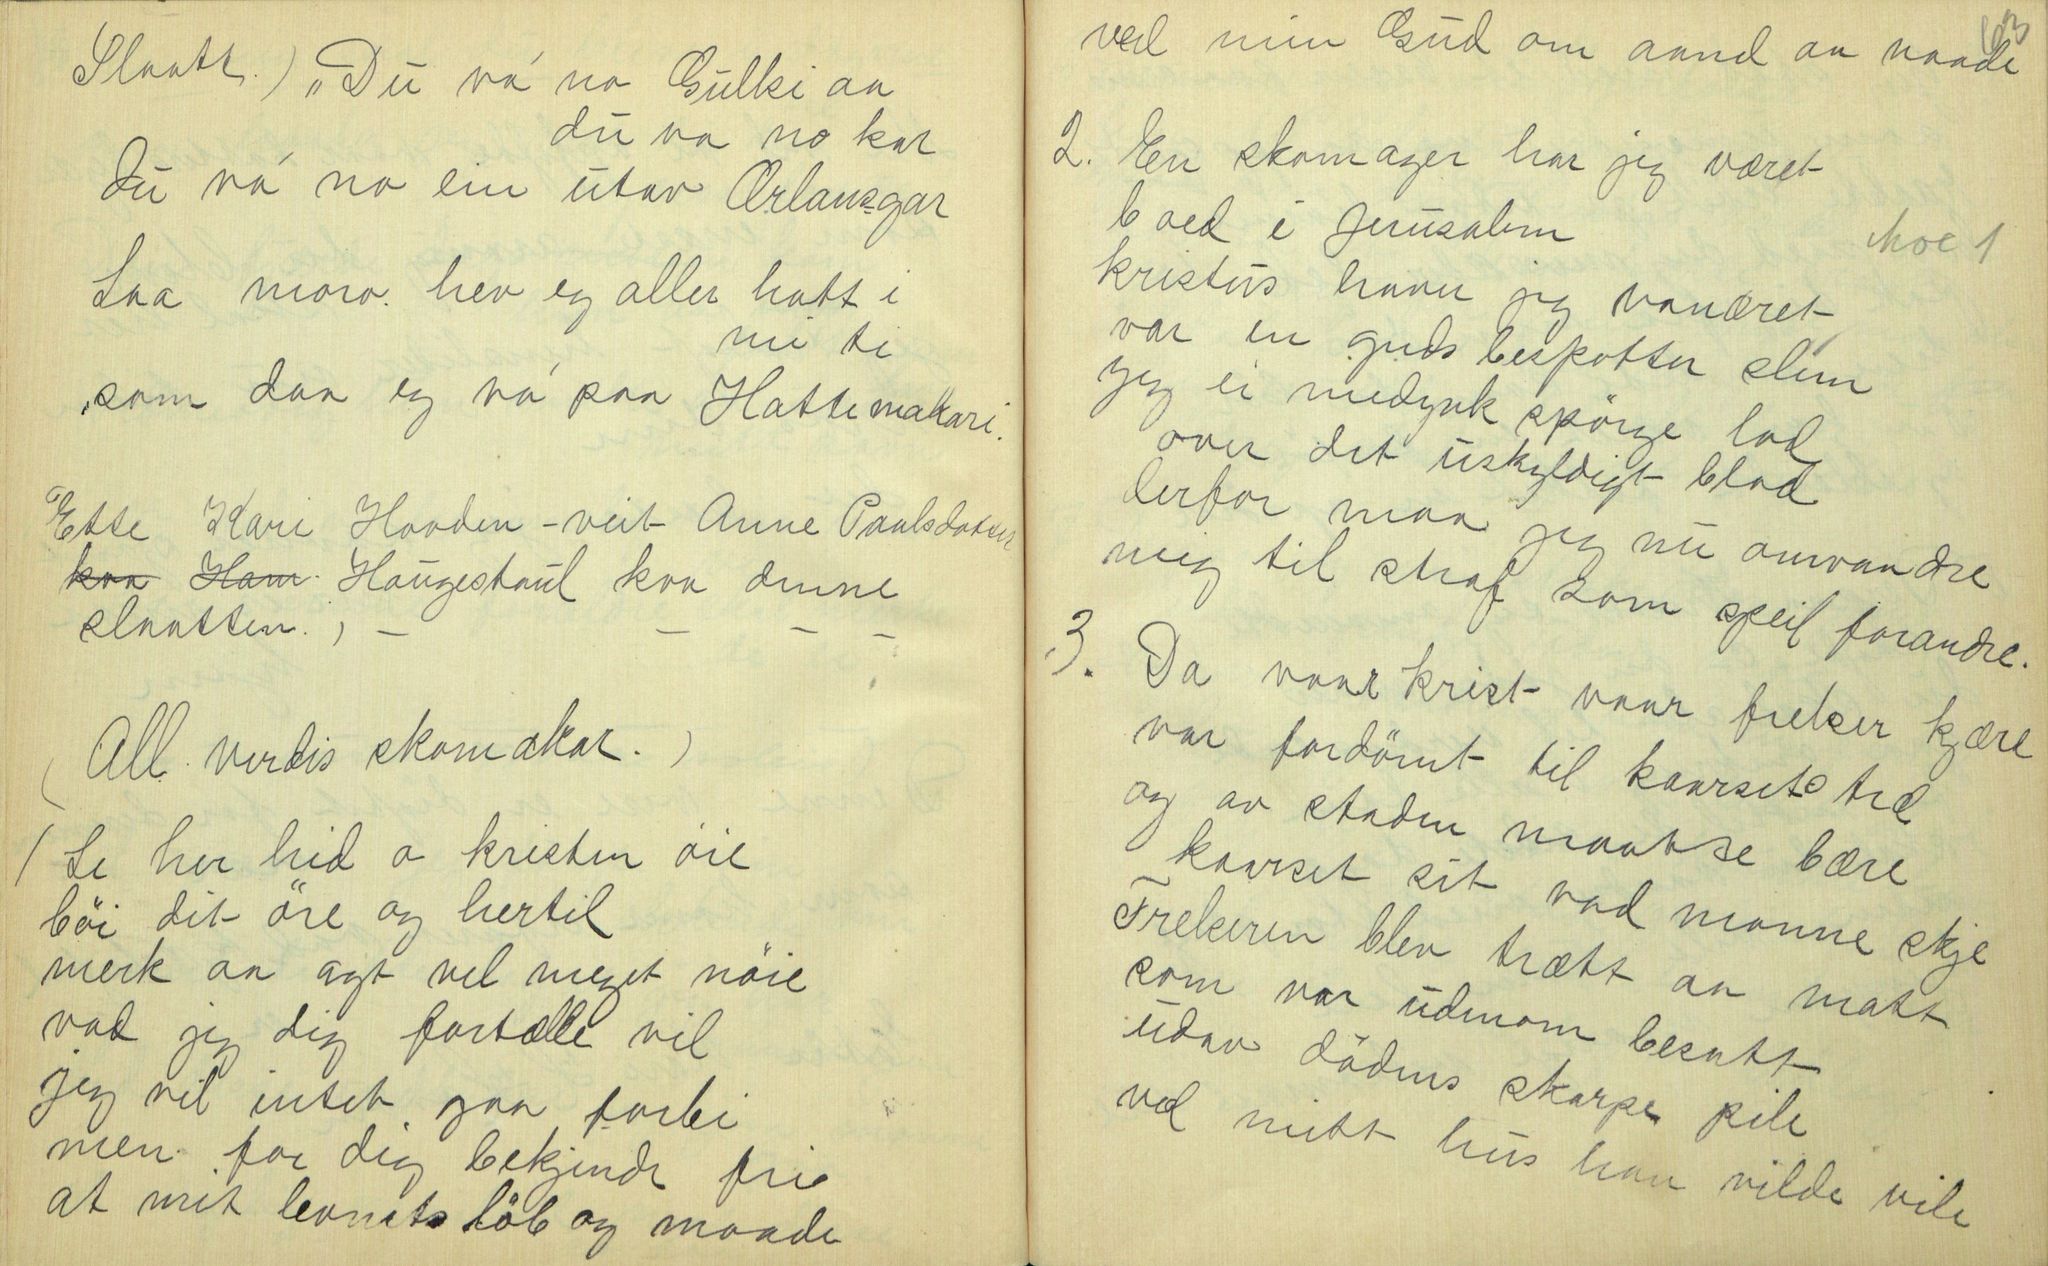 Slaatt.) „Du va' no Gulki aa
du va no kar
du va' no ein utav Ærlansgar
Saa moro. hev eg aller hatt i
mi ti
som daa eg va' paa Hattemakari.
"Ette Kari Haaden - veit Anne Paulsdotter
kaa Ham. Haugestaul kaa denne
slaatten. , - - - -
(All verdis skomakar.)
1 Se her hid o kristen öie
böi dit öre og hertil
merk aa agt vel meget nöie
vad jeg dig fortælle vil
jeg vil intet gaa forbi
men for dig bekjende fri
at mit levnets löb og maade
63
ved min Gud om aand aa naade
2. En skomager har jeg været
boed i Jerusalem
Moe 1
kristus haver jeg vanæret
var en guds bespotter slem
jeg ei medynk spörge lod
over det uskyldigt blod
derfor maa jeg nu omvandre
mig til straf som speil forandre.
3. Da vaar krist vaar frelser kjære
var fordömt til kaarsets træ
og av staden maatte bære
kaarset sit vad monne skje
Frelseren blev trætt aa matt
som var udmom besatt
udav dödens skarpe pile
ved mitt hus han vilde vile